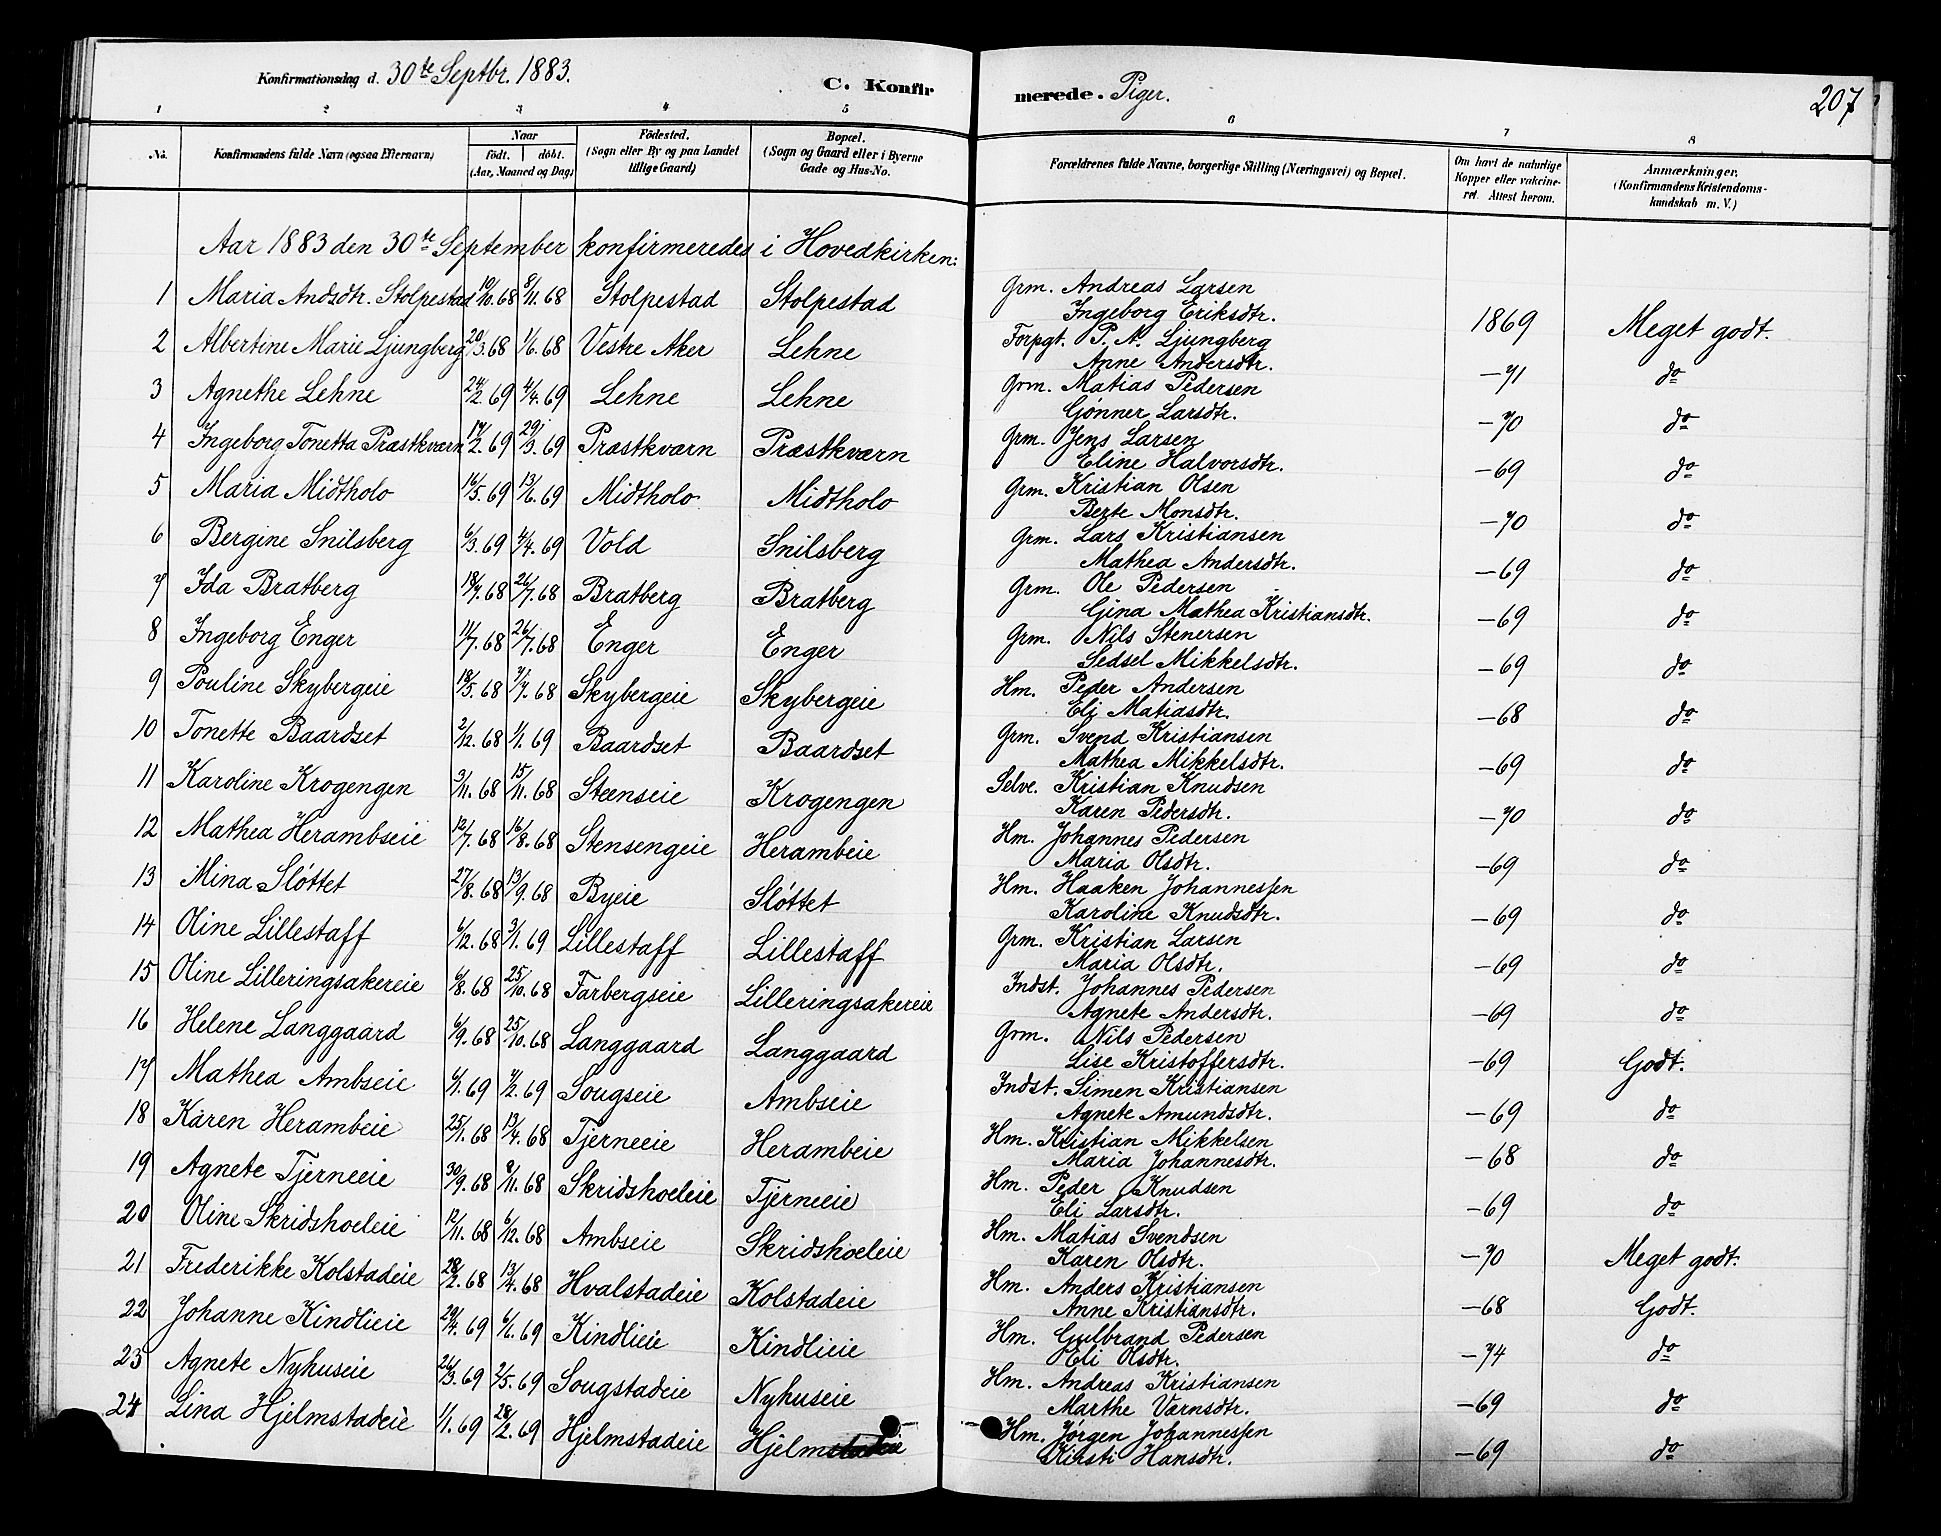 Konfirmationsdag d. 30te Septbr. 1883. C. Konfirmerede. Piger. 207
1 2 3 4 5 6 7 8
No. Konfirmandens fulde Navn (ogsaa Efternavn) Naar födt. döbt. (Aar, Maaned og Dag) Födested. (Sogn eller By og paa Landet tillige Gaard) Bopæl. (Sogn og Gaard eller i Byerne Gade og Hus-No. Forældrenes fulde Navne, borgerlige Stilling (Næringsvei) og Bopæl. Om havt de naturlige Kopper eller vakcineret. Attest herom. Anmærkninger. (Konfirmandens Kristendomskundskab m. V.)
Aar 1883 den 30te September konfirmeredes i Hovedkirken:
1 Maria Andsdtr. Stolpestad 10/10.68 8/11.68 Stolpestad Stolpestad Grm. Andreas Larsen
Ingeborg Eriksdtr. 1869 Meget godt.
2 Albertine Marie Ljungberg 20/3.68 1/6.68 Vestre Aker Lehne Forpgt. P. A. Ljungberg
Anne Andersdtr. -71 do
3 Agnethe Lehne 24/2.69 4/4.69 Lehne Lehne Grm. Matias Pedersen
Gønner Larsdtr. -70 do
4 Ingeborg Tonetta Præstkværn 14/2.69 29/3.69 Præstkværn Præstkværn Grm. Jens Larsen
Eline Halvorsdtr. -69 do
5 Maria Midtholo 16/5.69 13/6.69 Midtholo Midtholo Grm. Kristian Olsen
Berte Monsdtr. -70 do
6 Bergine Snilsberg 6/3.69 4/4.69 Vold Snilsberg Grm. Lars Kristiansen
Mathea Andersdtr. -69 do
7 Ida Bratberg 18/7.68 26/7.68 Bratberg Bratberg Grm. Ole Pedersen
Gina Mathea Kristiansdtr. -69 do
8 Ingeborg Enger 11/7.68 26/7.68 Enger Enger Grm. Nils Stenersen
Sedsel Mikkelsdtr. -69 do
9 Pouline Skybergeie 18/5.68 7/7.68 Skybergeie Skybergeie Hm. Peder Andersen
Eli Matiasdtr. -68 do
10 Tonette Baardset 2/12.68 1/1.69 Baardset Baardset Grm. Svend Kristiansen
Mathea Mikkelsdtr. -69 do
11 Karoline Krogengen 3/11.68 15/11.68 Steenseie Krogengen Selve. Kristian Knudsen
Karen Pedersdtr. -70 do
12 Mathea Herambseie 12/7.68 16/8.68 Stensengeie Herambeie Hm. Johannes Pedersen
Maria Olsdtr. -69 do
13 Mina Sløttet 27/8.68 13/9.68 Byeie Sløttet Hm. Haaken Johannessen
Karoline Knudsdtr. -69 do
14 Oline Lillestaff 6/12.68 3/1.69 Lillestaff Lillestaff Grm. Kristian Larsen
Maria Olsdtr. -69 do
15 Oline Lilleringsakereie 6/8.68 25/10.68 Farbergseie Lilleringsakereie Indst. Johannes Pedersen
Agnete Andersdtr. -69 do
16 Helene Langgaard 6/9.68 25/10.68 Langgaard Langgaard Grm. Nils Pedersen
Lise Kristoffersdtr. -69 Godt.
17 Mathea Ambseie 6/1.69 7/2.69 Sougseie Ambseie Indst. Simen Kristiansen
Agnete Amundsdtr. -69 do
18 Karen Herambeie 25/1.68 13/4.68 Tjerneeie Herambeie Hm. Kristian Mikkelsen
Maria Johannesdtr. -68 do
19 Agnete Tjerneeie 30/9.68 8/11.68 Skridshoeleie Tjerneeie Hm. Peder Knudsen
Eli Larsdtr. -69 do
20 Oline Skridshoeleie 12/11.68 6/12.68 Ambseie Skridshoeleie Hm. Matias Svendsen
Karen Olsdtr. -70 Meget godt.
21 Frederikke Kolstadeie 28/2.68 13/4.68 Hvalstadeie Kolstadeie Hm. Anders Kristiansen
Anne Kristiansdtr. -68 Godt.
22 Johanne Kindlieie 29/4.69 6/6.69 Kindlieie Kindlieie Hm. Gulbrand Pedersen
Eli Olsdtr. -74 do
23 Agnete Nyhuseie 26/3.69 2/5.69 Sougstadeie Nyhuseie Hm. Andreas Kristiansen
Marthe Værnsdtr. -69 do
24 Lina Hjelmstadeie 1/1.69 28/2.69 Hjelmstadeie Hjelmstadeie Hm. Jørgen Johannessen
Kirsti Hansdtr. -69 do